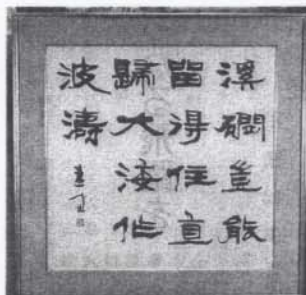 溪磵豈能
留得住直
歸大海作
波濤